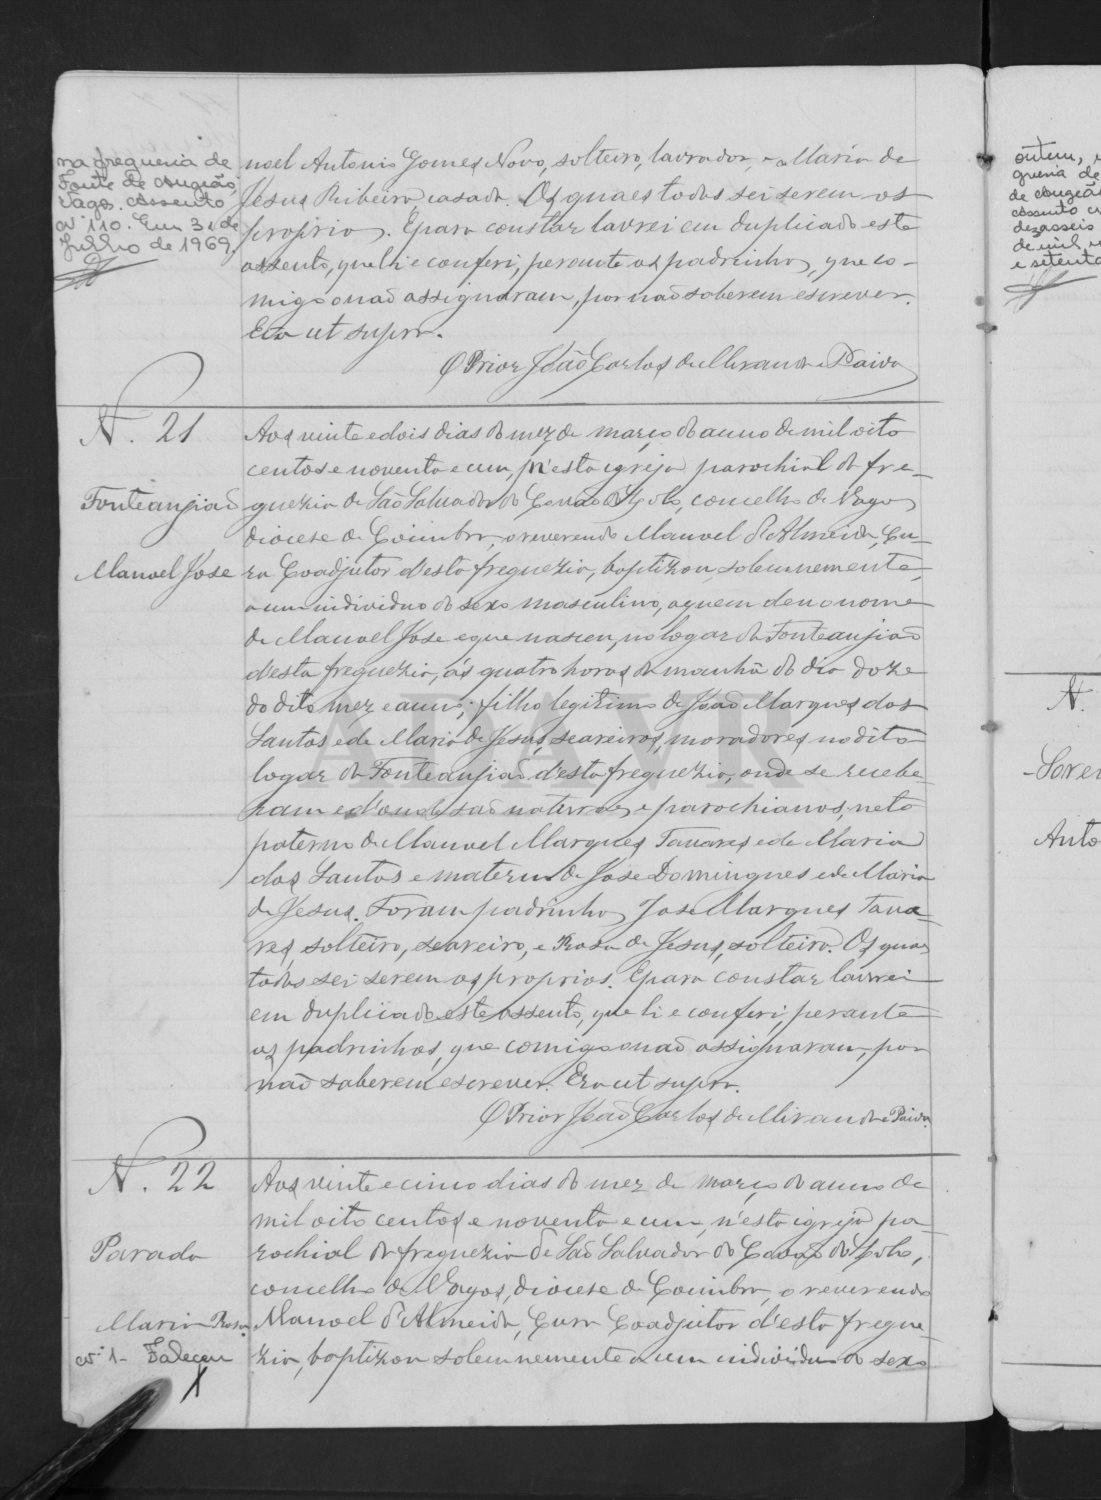 na freguesia de
Fonte de Angião,
Vagos. Assento
nº 110. Em 31 de
Julho de 1969.
noel Antonio Gomes Novo, solteiro, lavrador, e Maria de
Jesus Ribeiro, casada. Os quaes todos sei serem os
proprios. E para constar lavrei em duplicado este
assento, que li e conferi, perante os padrinhos, que co-
migo não assignaram, por não saberem escrever.
Era ut supra.
O Prior João Carlos de Miranda e Paiva
N. 21
Fonteangião
Manoel José
Aos vinte e dois dias do mez de março do anno de mil oito
centos e noventa e um, n'esta igreja parochial da fre-
guezia de São Salvador do Covão do Lobo, concelho de Vagos
diocese de Coimbra, o reverendo Manoel d'Almeida, Cu-
ra Coadjutor d'esta freguezia, baptizou solemnemente,
a um individuo do sexo masculino, a quem deu o nome
de Manoel José e que nasceu, no logar da Fonteangião
d'esta freguezia, ás quatro horas da manhã do dia doze
do dito mez e anno; filho legitimo de João Marques dos
Santos e de Maria de Jesus, seareiros, moradores no dito
logar da Fonteangião d'esta freguezia, onde se recebe-
ram e d'onde são naturaes e parochianos, neto
paterno de Manoel Marques Tavares e de Maria
dos Santos e materno de José Domingues e de Maria
de Jesus. Foram padrinhos José Marques Tava-
res, solteiro, seareiro, e Rosa de Jesus, solteira. Os quaes
todos sei serem os proprios. E para constar lavrei
em duplicado este assento, que li e conferi, perante
os padrinhos, que comigo não assignaram, por
não saberem escrever. Era ut supra.
O Prior João Carlos de Miranda e Paiva
N. 22
Parada
Maria Rosa
nº 1- Faleceu
X
Aos vinte e cinco dias do mez de março do anno de
mil oito centos e noventa e um, n'esta igreja pa-
rochial da freguezia de São Salvador do Covão do Lobo,
concelho de Vagos, diocese de Coimbra, o reverendo
Manoel d'Almeida, Cura Coadjutor d'esta fregue-
zia, baptizou solemnemente a um individuo do sexo
ADAVR
ontem,
guesia de
de Angião
assento
dezasseis
de mil
e setenta
N.
Antó